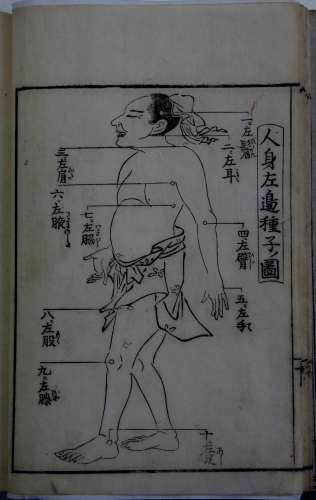 人身左邉種子ノ圖
一、左鬢
二、左耳
三、左肩
四、左臂
五、左手
六、左腋
七、左脇
八、左股
九、左膝
十、左足